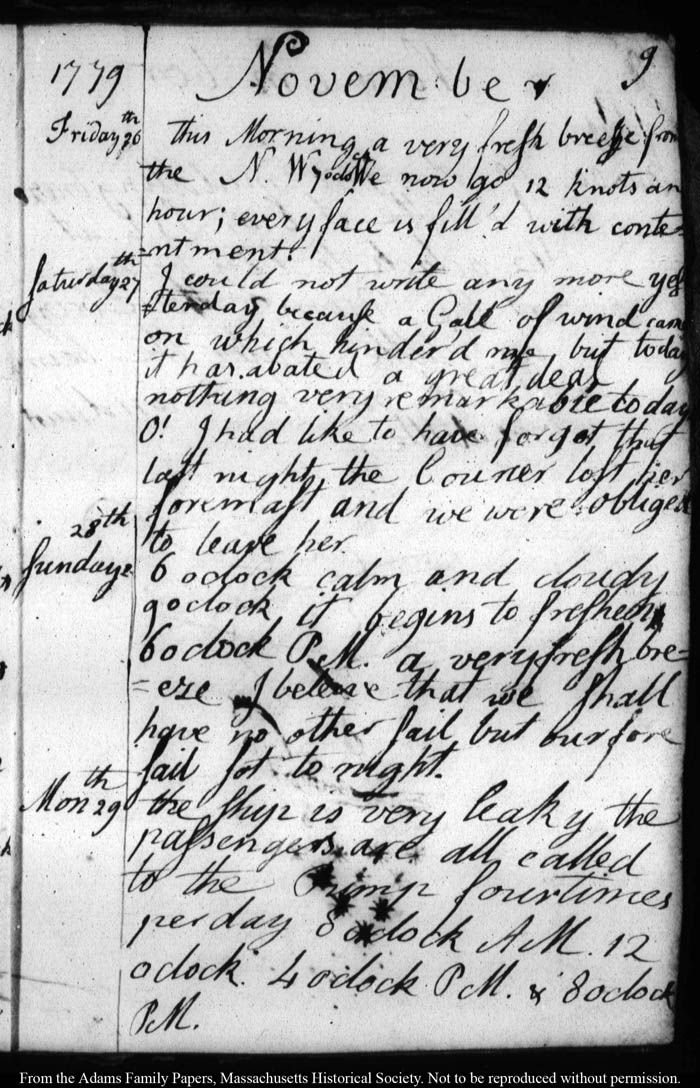 1779 November 9
Friday 26th this Morning a very fresh breeze from
the N. W 7 oclock We now go 12 knots an
hour; every face is fill'd with conte-
=ntment.
Saturday 27th I could not write any more yes
=terday because a Gale of wind came
on which hinder'd me but today
it has abated a great deal
nothing very remarkable today
O! I had like to have forgot that
last night the Courier lost her
foremast and we were obliged
to leave her.
28th
Sunday 6 oclock calm and cloudy
9 oclock it begins to freshen
6 oclock P.M. a very fresh bre-
=eze I beleive that we shall
have no other sail but our fore
sail sot to night.
Mon 29th the ship is very leaky the
passengers are all called
to the Pump four times
per day 8 oclock A.M. 12
oclock. 4 oclock P.M. & 8 oclock
P.M.
From the Adams Family Papers, Massachusetts Historical Society. Not to be reproduced without permission.